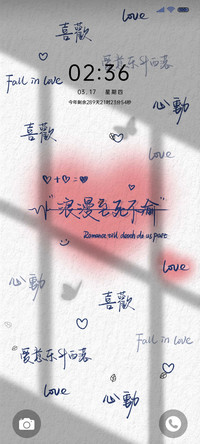 Love
喜歡
爱意东升西落
02:36
Fall in love
03.17 星期四
今年剩余289天21时23分54秒
心動
喜歡
Love
♡+♡=♡
“浪漫至死不渝”
Romance till death do us part
Love
心動
喜歡
Fall in love
爱意东升西落
Love
心動